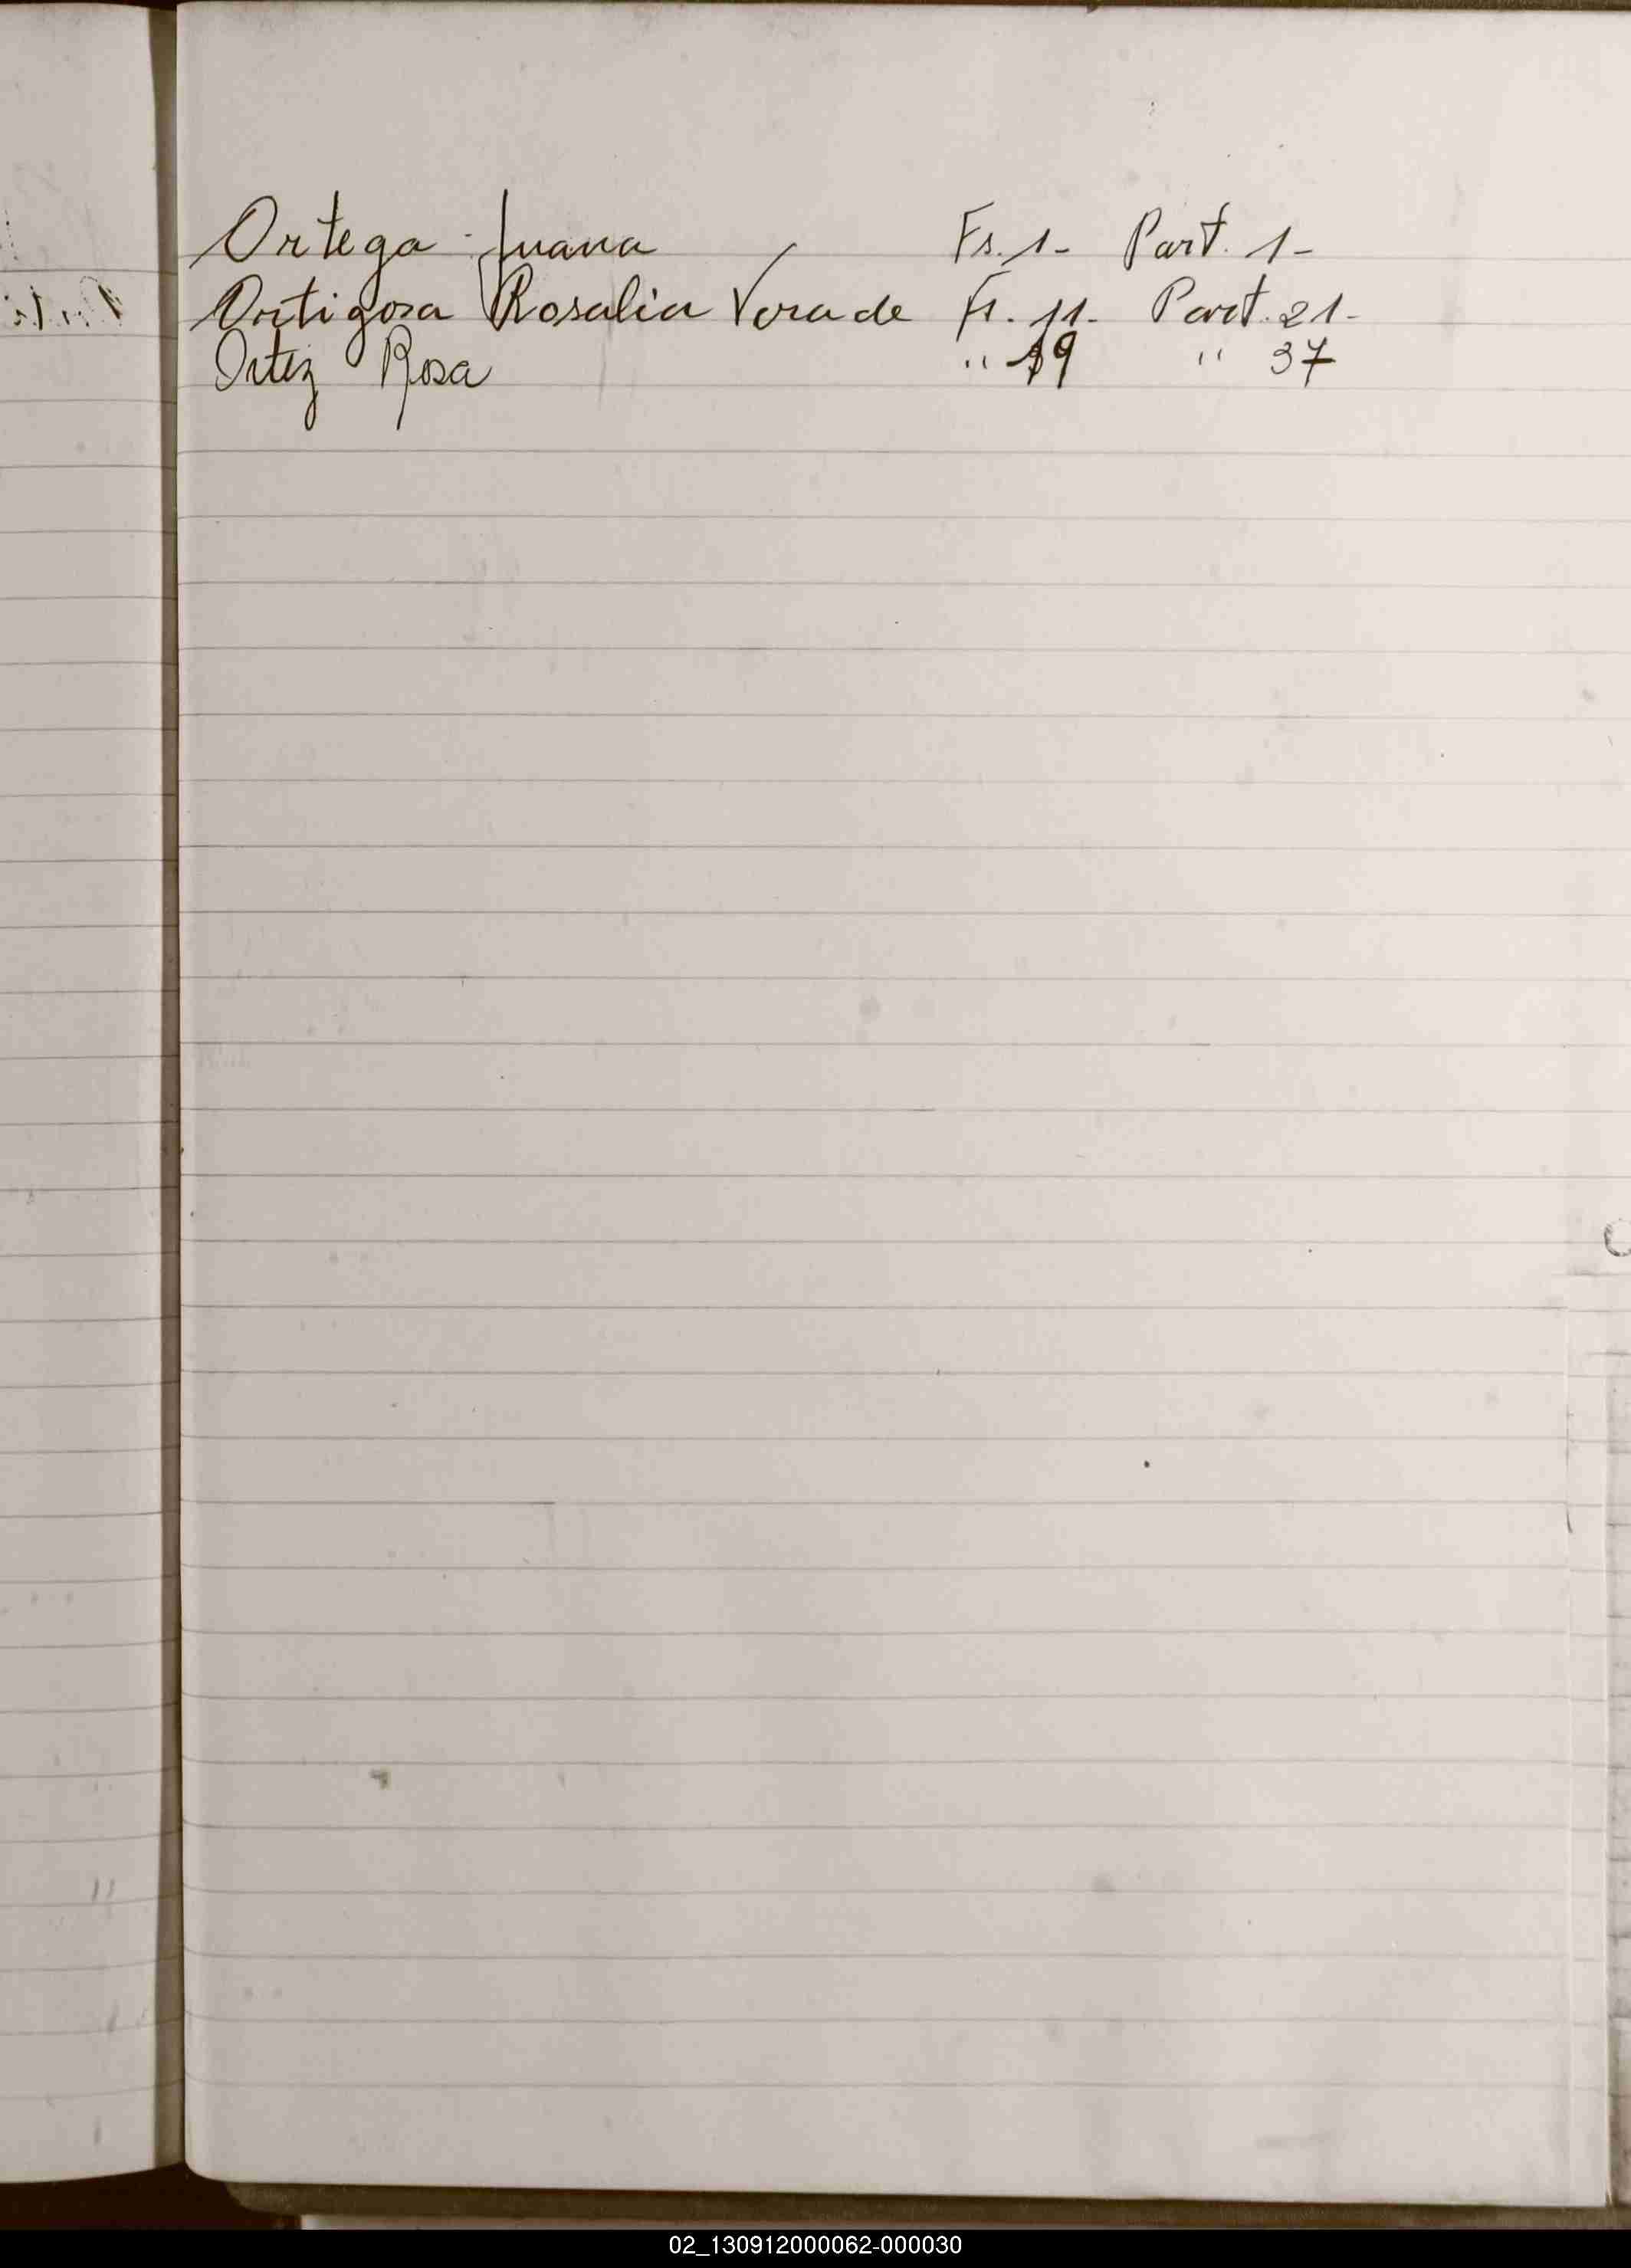 Ortega Juana Fs. 1- Part. 1-
Ortigosa Rosalia Vera de Fs. 11- Part. 21-
Ortiz Rosa " 19 " 37
02_130912000062-000030